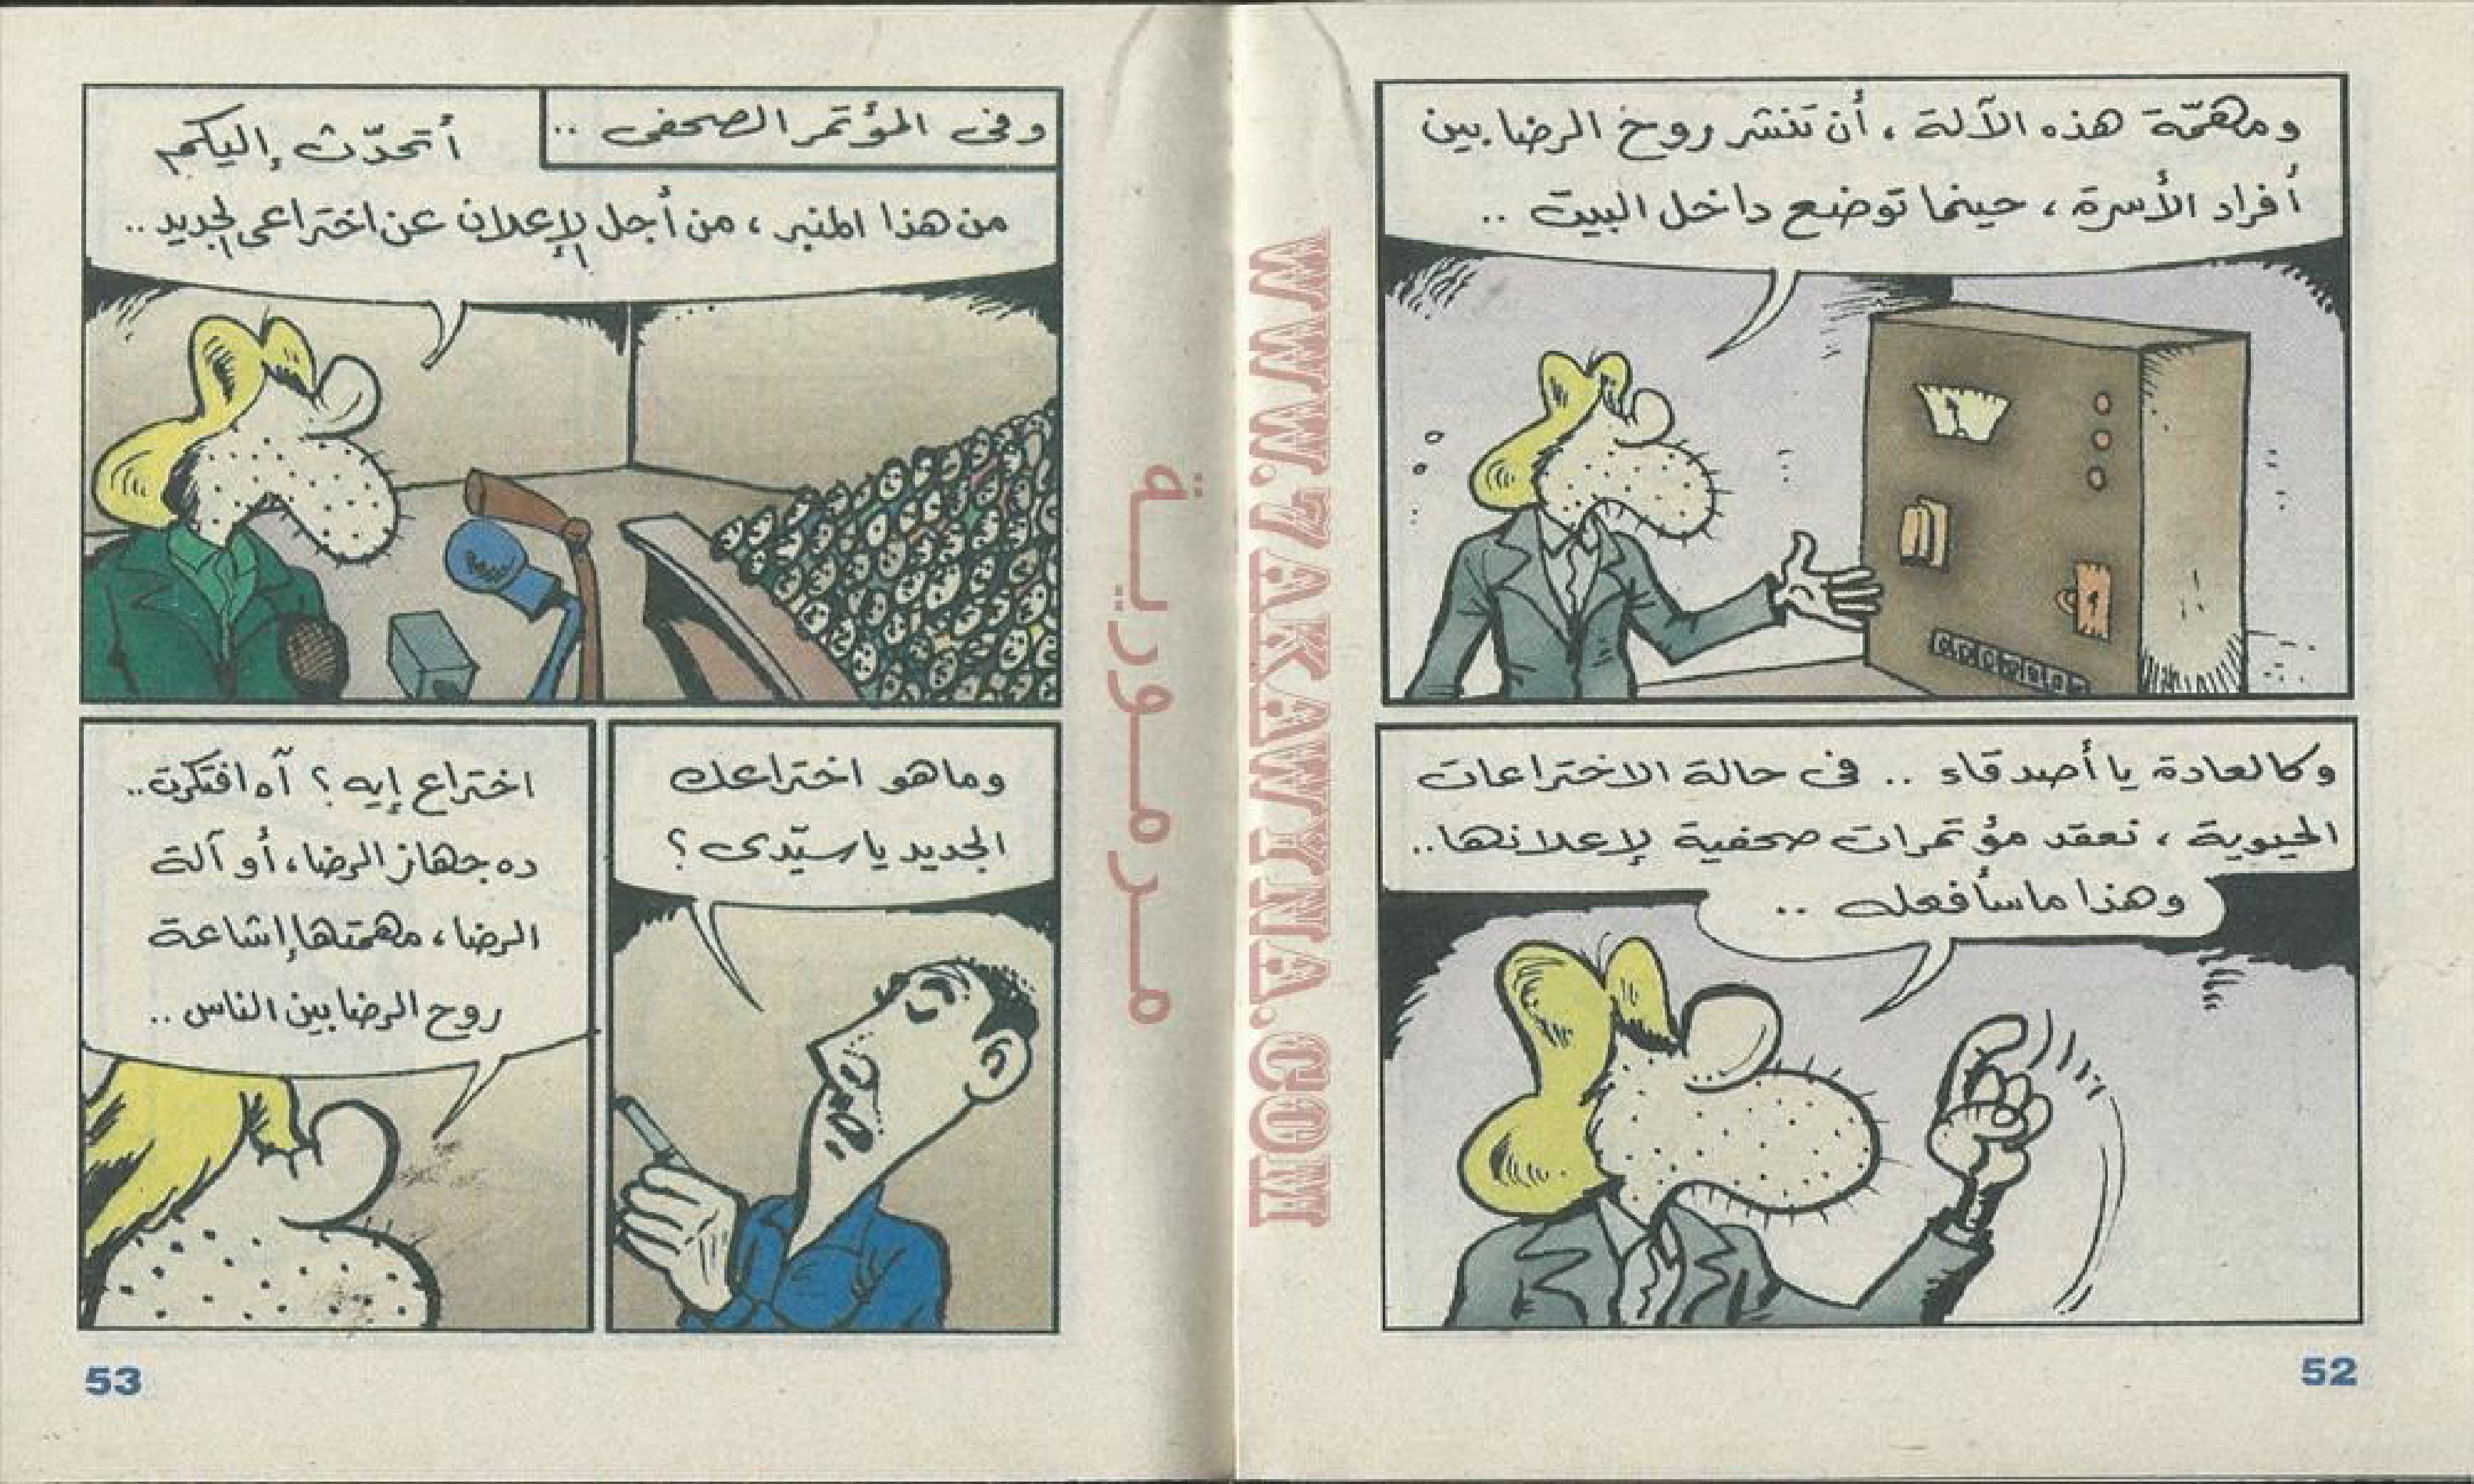 ومهمّة هذه الآلة ، أن تنشر روح الرضا بين
أفراد الأسرة ، حينما توضع داخل البيت ..
وكالعادة يا أصدقاء .. فى حالة الاختراعات
الحيوية ، نعقد مؤتمرات صحفية لإعلانها ..
وهذا ما سأفعله ..
52
WWW.7AKAWYINA.COM
مرمورية
وفى المؤتمر الصحفى ..
أتحدّث إليكم
من هذا المنبر ، من أجل الإعلان عن اختراعى الجديد ..
وما هو اختراعك
الجديد يا سيّدى ؟
اختراع إيه ؟ آه افتكرت ..
ده جهاز الرضا ، أو آلة
الرضا ، مهمتها إشاعة
روح الرضا بين الناس ..
53